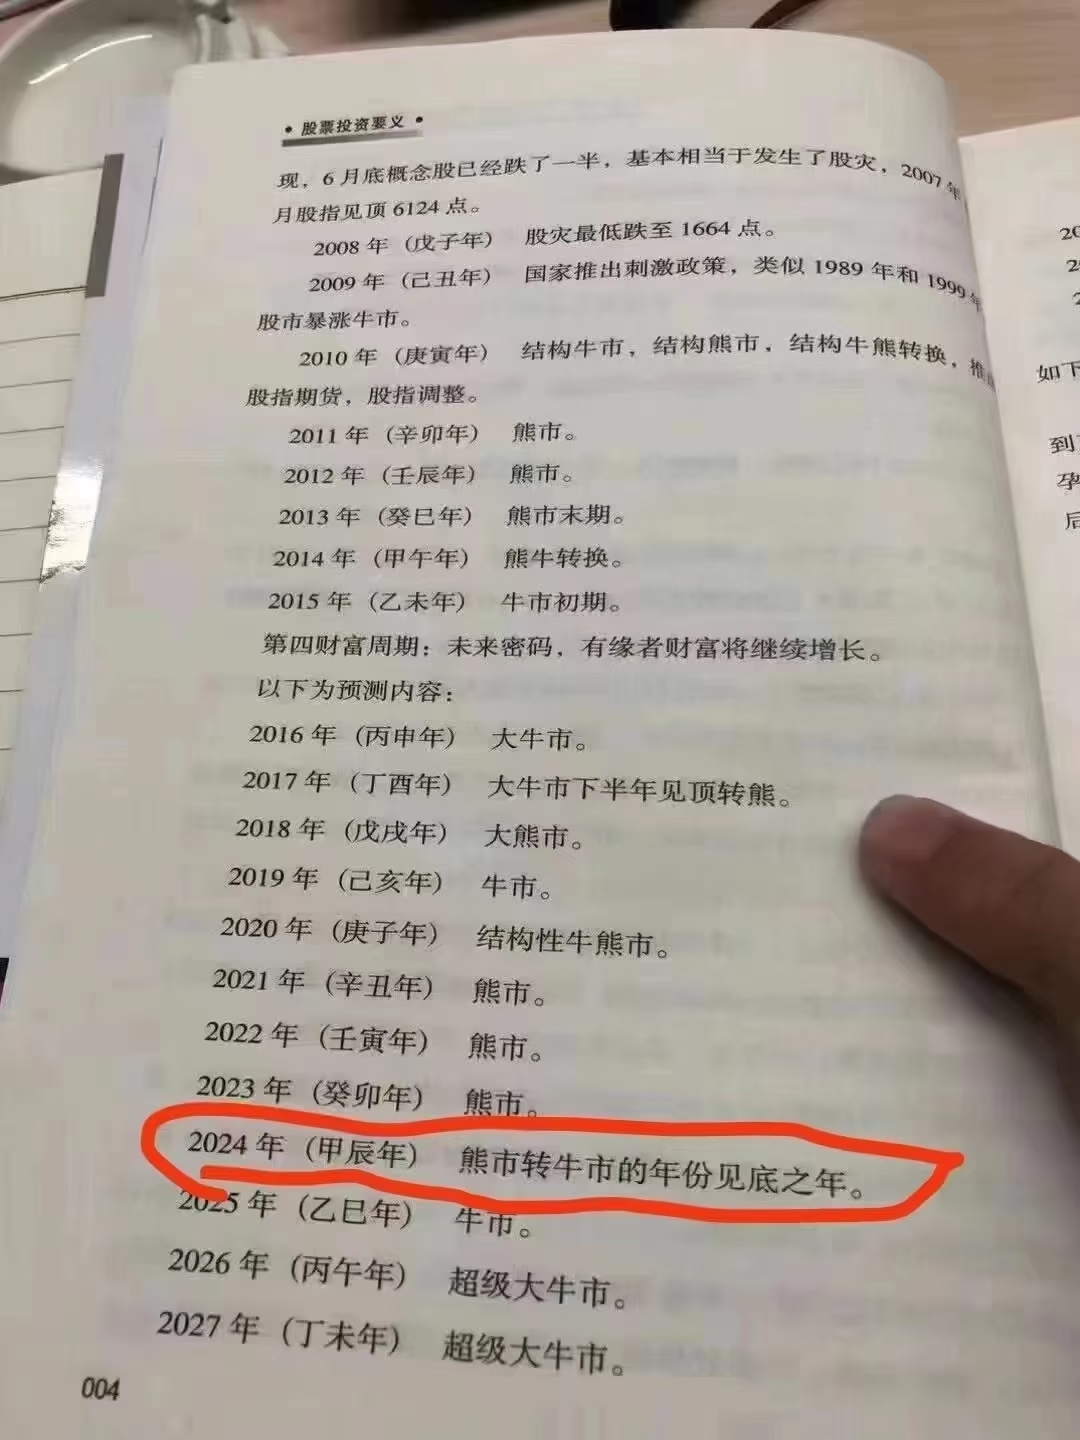 • 股票投资要义 •
现，6月底概念股已经跌了一半，基本相当于发生了股灾，2007年
月股指见顶6124点。
2008年（戊子年） 股灾最低跌至1664点。
2009年（己丑年） 国家推出刺激政策，类似1989年和1999年
股市暴涨牛市。
2010年（庚寅年） 结构牛市，结构熊市，结构牛熊转换，推
股指期货，股指调整。
2011年（辛卯年） 熊市。
2012年（壬辰年） 熊市。
2013年（癸巳年） 熊市末期。
2014年（甲午年） 熊牛转换。
2015年（乙未年） 牛市初期。
第四财富周期：未来密码，有缘者财富将继续增长。
以下为预测内容：
2016年（丙申年） 大牛市。
2017年（丁酉年） 大牛市下半年见顶转熊。
2018年（戊戌年） 大熊市。
2019年（己亥年） 牛市。
2020年（庚子年） 结构性牛熊市。
2021年（辛丑年） 熊市。
2022年（壬寅年） 熊市。
2023年（癸卯年） 熊市。
2024年（甲辰年） 熊市转牛市的年份见底之年。
2025年（乙巳年） 牛市。
2026年（丙午年） 超级大牛市。
2027年（丁未年） 超级大牛市。
004
20
如下
到
孕
后